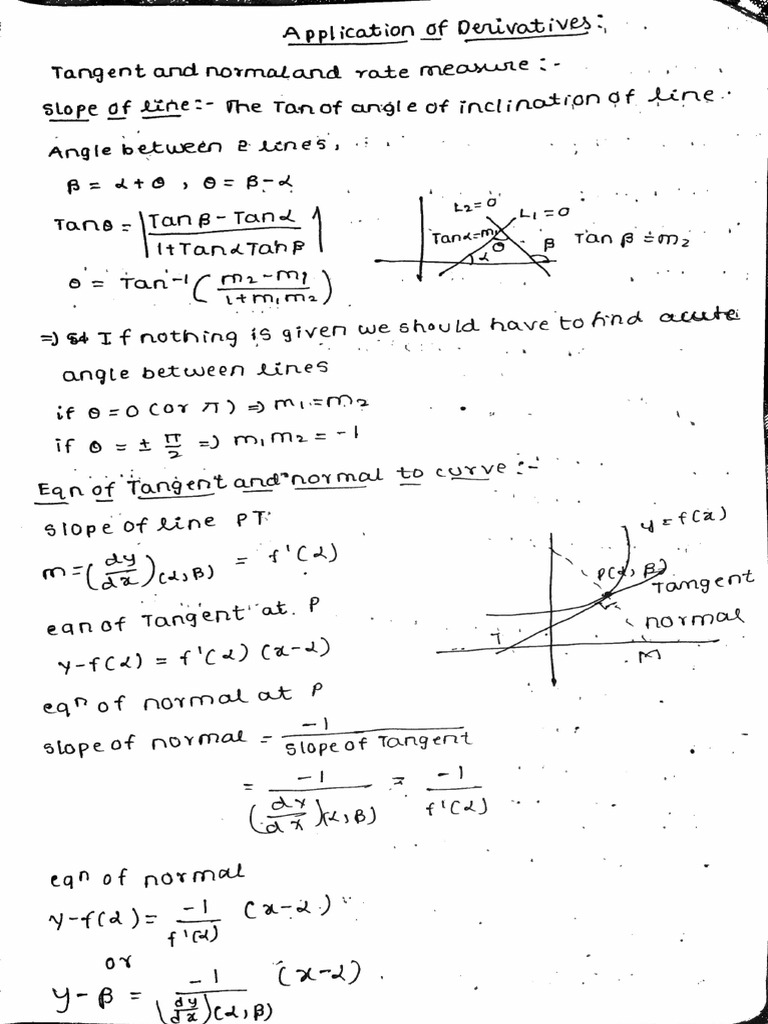 Application of Derivatives:
Tangent and normal and rate measure :-
Slope of line:- The Tan of angle of inclination of line.
Angle between 2 lines,
β = α + θ , θ = β - α
Tanθ = |Tan β - Tan α / 1 + Tan α Tan β|
θ = Tan⁻¹ (m₂ - m₁ / 1 + m₁ m₂)
L₂ = 0
L₁ = 0
Tan α = m₁
θ
α
β
Tan β = m₂
=) If nothing is given we should have to find acute
angle between lines
if θ = 0 (or π) => m₁ = m₂
if θ = ± π/2 => m₁ m₂ = -1
Eqn of Tangent and normal to curve :-
Slope of line PT
m = (dy/dx)(α, β) = f'(α)
eqn of Tangent at P
y - f(α) = f'(α) (x - α)
y = f(x)
P(α, β)
Tangent
normal
T
M
eqⁿ of normal at P
slope of normal = -1 / Slope of Tangent
= -1 / (dy/dx)(α, β) = -1 / f'(α)
eqⁿ of normal
y - f(α) = -1 / f'(α) (x - α)
or
y - β = -1 / (dy/dx)(α, β) (x - α).